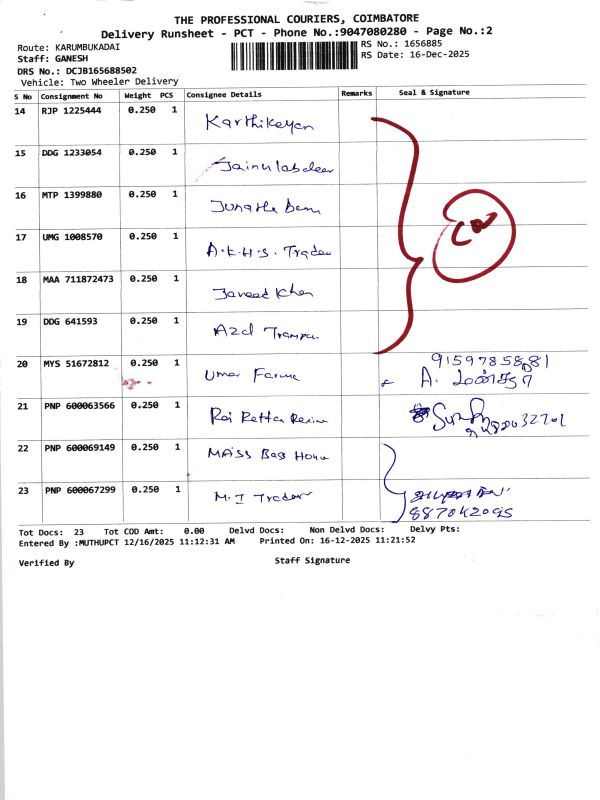 THE PROFESSIONAL COURIERS, COIMBATORE
Delivery Runsheet - PCT - Phone No.:9047080280 - Page No.:2
Route: KARUMBUKADAI
Staff: GANESH
DRS No.: DCJB165688502
Vehicle: Two Wheeler Delivery
RS No.: 1656885
RS Date: 16-Dec-2025
S No Consignment No Weight PCS Consignee Details Remarks Seal & Signature
14 RJP 1225444 0.250 1 Karthikeyan
15 DDG 1233054 0.250 1 Jainulabdeen
16 MTP 1399880 0.250 1
17 UMG 1008570 0.250 1 A.K.H.S. Traders
18 MAA 711872473 0.250 1 Javeed Khan
19 DDG 641593 0.250 1 Azd
20 MYS 51672812 0.250 1 Umar 9159785881
A.
21 PNP 600063566 0.250 1 Rai
22 PNP 600069149 0.250 1 MAISS Bag Home
23 PNP 600067299 0.250 1 M.I Traders
887042095
Tot Docs: 23 Tot COD Amt: 0.00 Delvd Docs: Non Delvd Docs: Delvy Pts:
Entered By :MUTHUPCT 12/16/2025 11:12:31 AM Printed On: 16-12-2025 11:21:52
Verified By Staff Signature